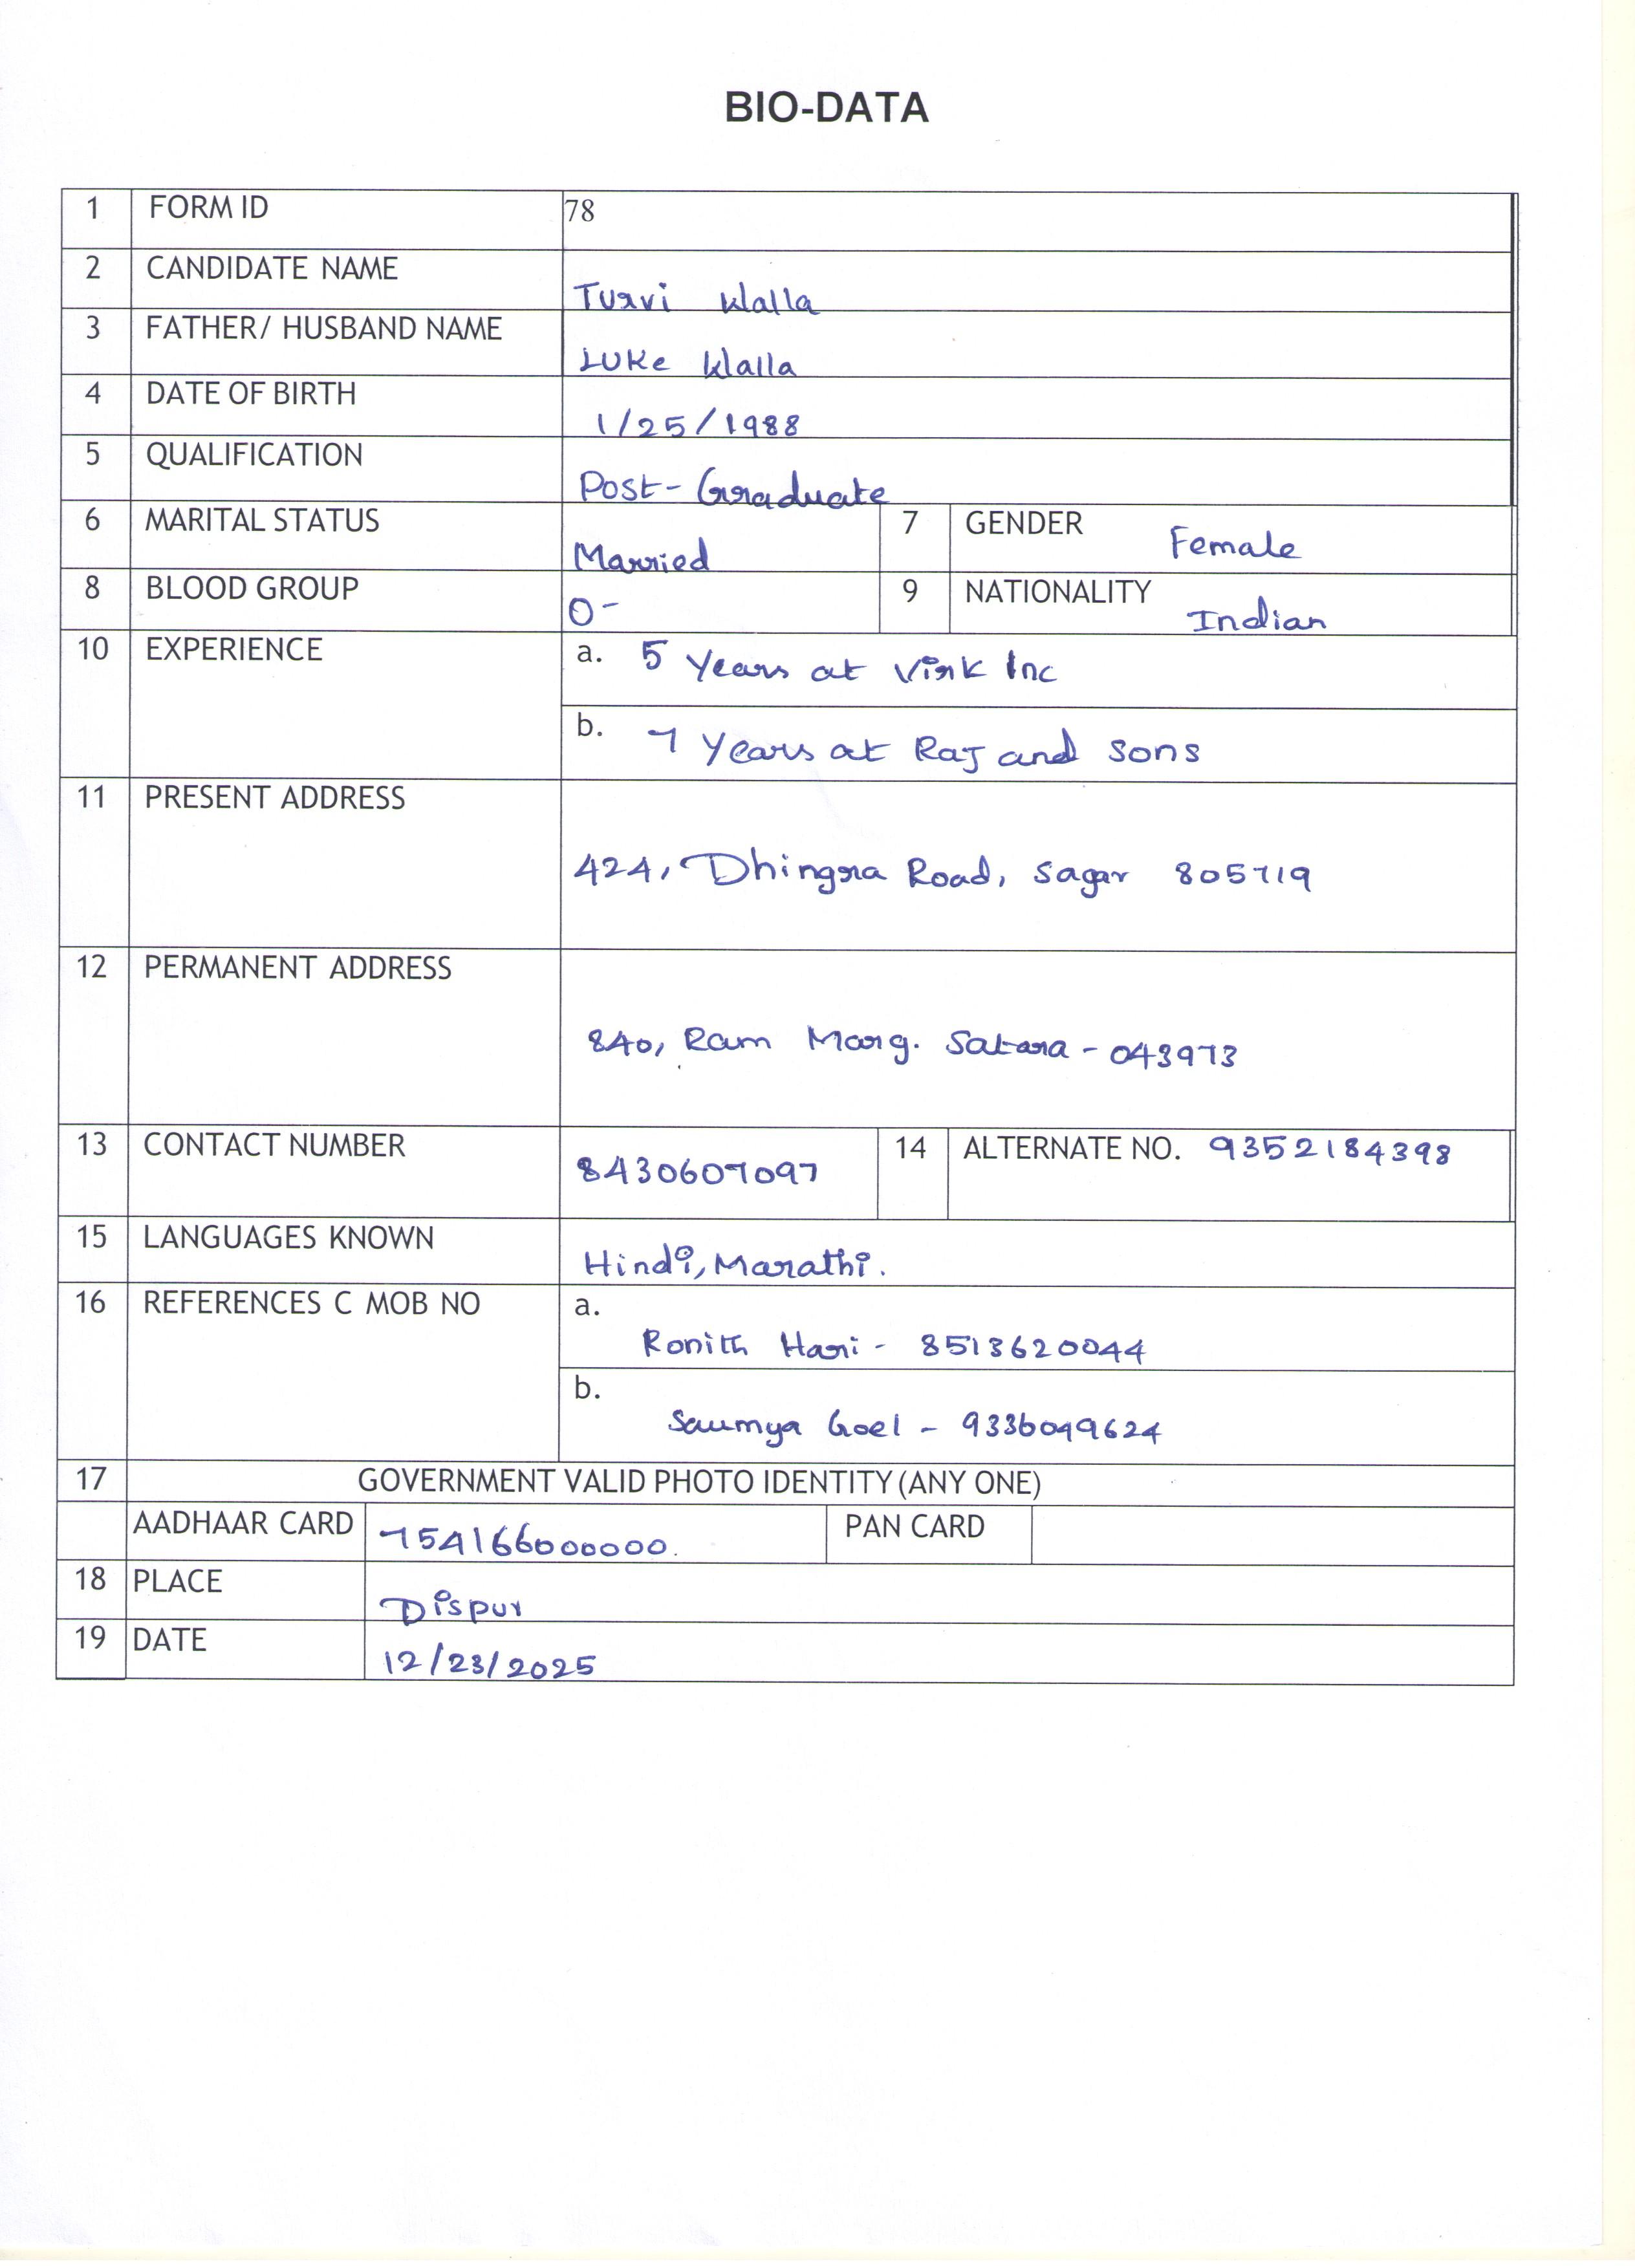 BIO-DATA
1 FORM ID 78
2 CANDIDATE NAME Turvi Walla
3 FATHER/ HUSBAND NAME Luke Walla
4 DATE OF BIRTH 1/25/1988
5 QUALIFICATION Post-Graduate
6 MARITAL STATUS Married 7 GENDER Female
8 BLOOD GROUP O- 9 NATIONALITY Indian
10 EXPERIENCE a. 5 Years at Virk Inc
b. 7 Years at Raj and sons
11 PRESENT ADDRESS
424, Dhingra Road, Sagar 805719
12 PERMANENT ADDRESS
840, Ram Marg. Satara - 043973
13 CONTACT NUMBER 8430607097 14 ALTERNATE NO. 9352184398
15 LANGUAGES KNOWN Hindi, Marathi.
16 REFERENCES C MOB NO a.
Ronith Hari - 8513620044
b.
Saumya Goel - 9336049624
17 GOVERNMENT VALID PHOTO IDENTITY (ANY ONE)
AADHAAR CARD 754166000000. PAN CARD
18 PLACE Dispur
19 DATE 12/23/2025